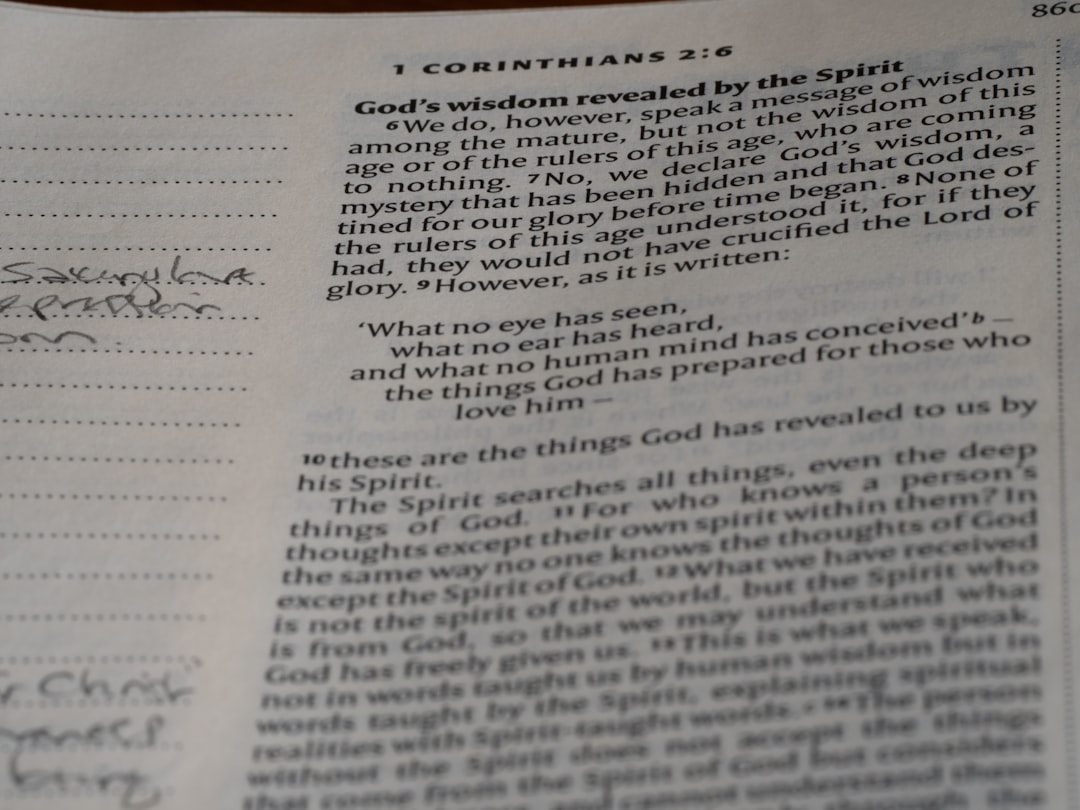 860
1 CORINTHIANS 2:6
God's wisdom revealed by the Spirit
6 We do, however, speak a message of wisdom
among the mature, but not the wisdom of this
age or of the rulers of this age, who are coming
to nothing. 7 No, we declare God's wisdom, a
mystery that has been hidden and that God des-
tined for our glory before time began. 8 None of
the rulers of this age understood it, for if they
had, they would not have crucified the Lord of
glory. 9 However, as it is written:
'What no eye has seen,
what no ear has heard,
and what no human mind has conceived' b —
the things God has prepared for those who
love him —
10 these are the things God has revealed to us by
his Spirit.
The Spirit searches all things, even the deep
things of God. 11 For who knows a person's
thoughts except their own spirit within them? In
the same way no one knows the thoughts of God
except the Spirit of God. 12 What we have received
is not the spirit of the world, but the Spirit who
is from God, so that we may understand what
God has freely given us. 13 This is what we speak,
not in words taught us by human wisdom but in
words taught by the Spirit, explaining spiritual
realities with Spirit-taught words. 14 The person
without the Spirit does not accept the things
that come from the Spirit of God but considers
Christ